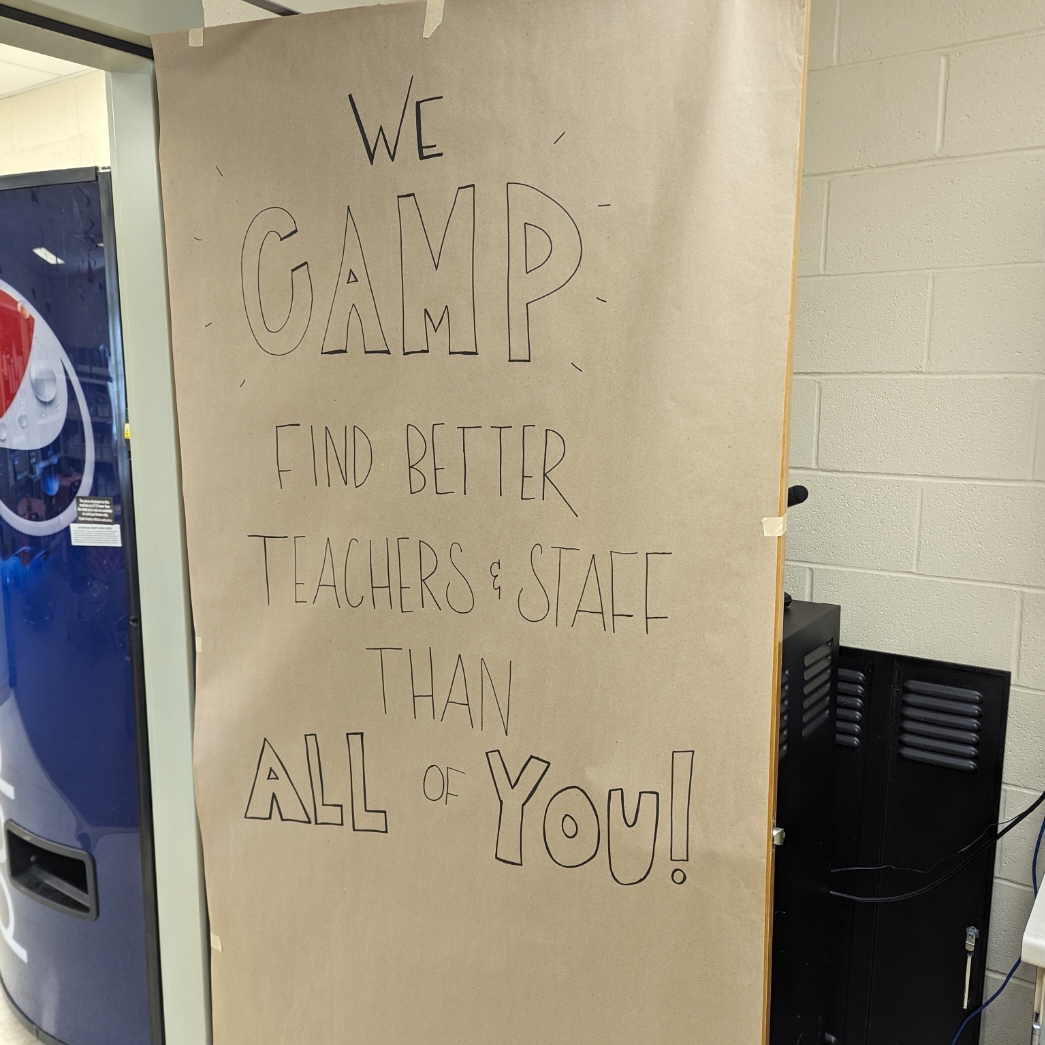 WE
CAMP
FIND BETTER
TEACHERS & STAFF
THAN
ALL OF YOU!